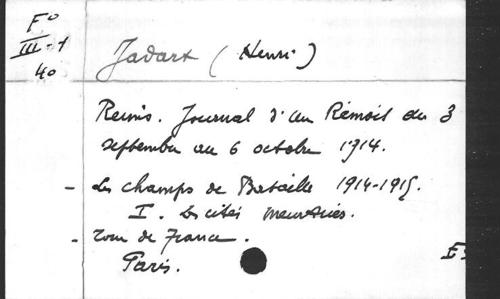 F°
III-1
40
Jadart (Henri)
Reims. Journal d'un Rémois du 3
septembre au 6 octobre 1914.
- Les champs de Bataille 1914-1915.
I. Les cités meurtries.
- Tour de France.
Paris.